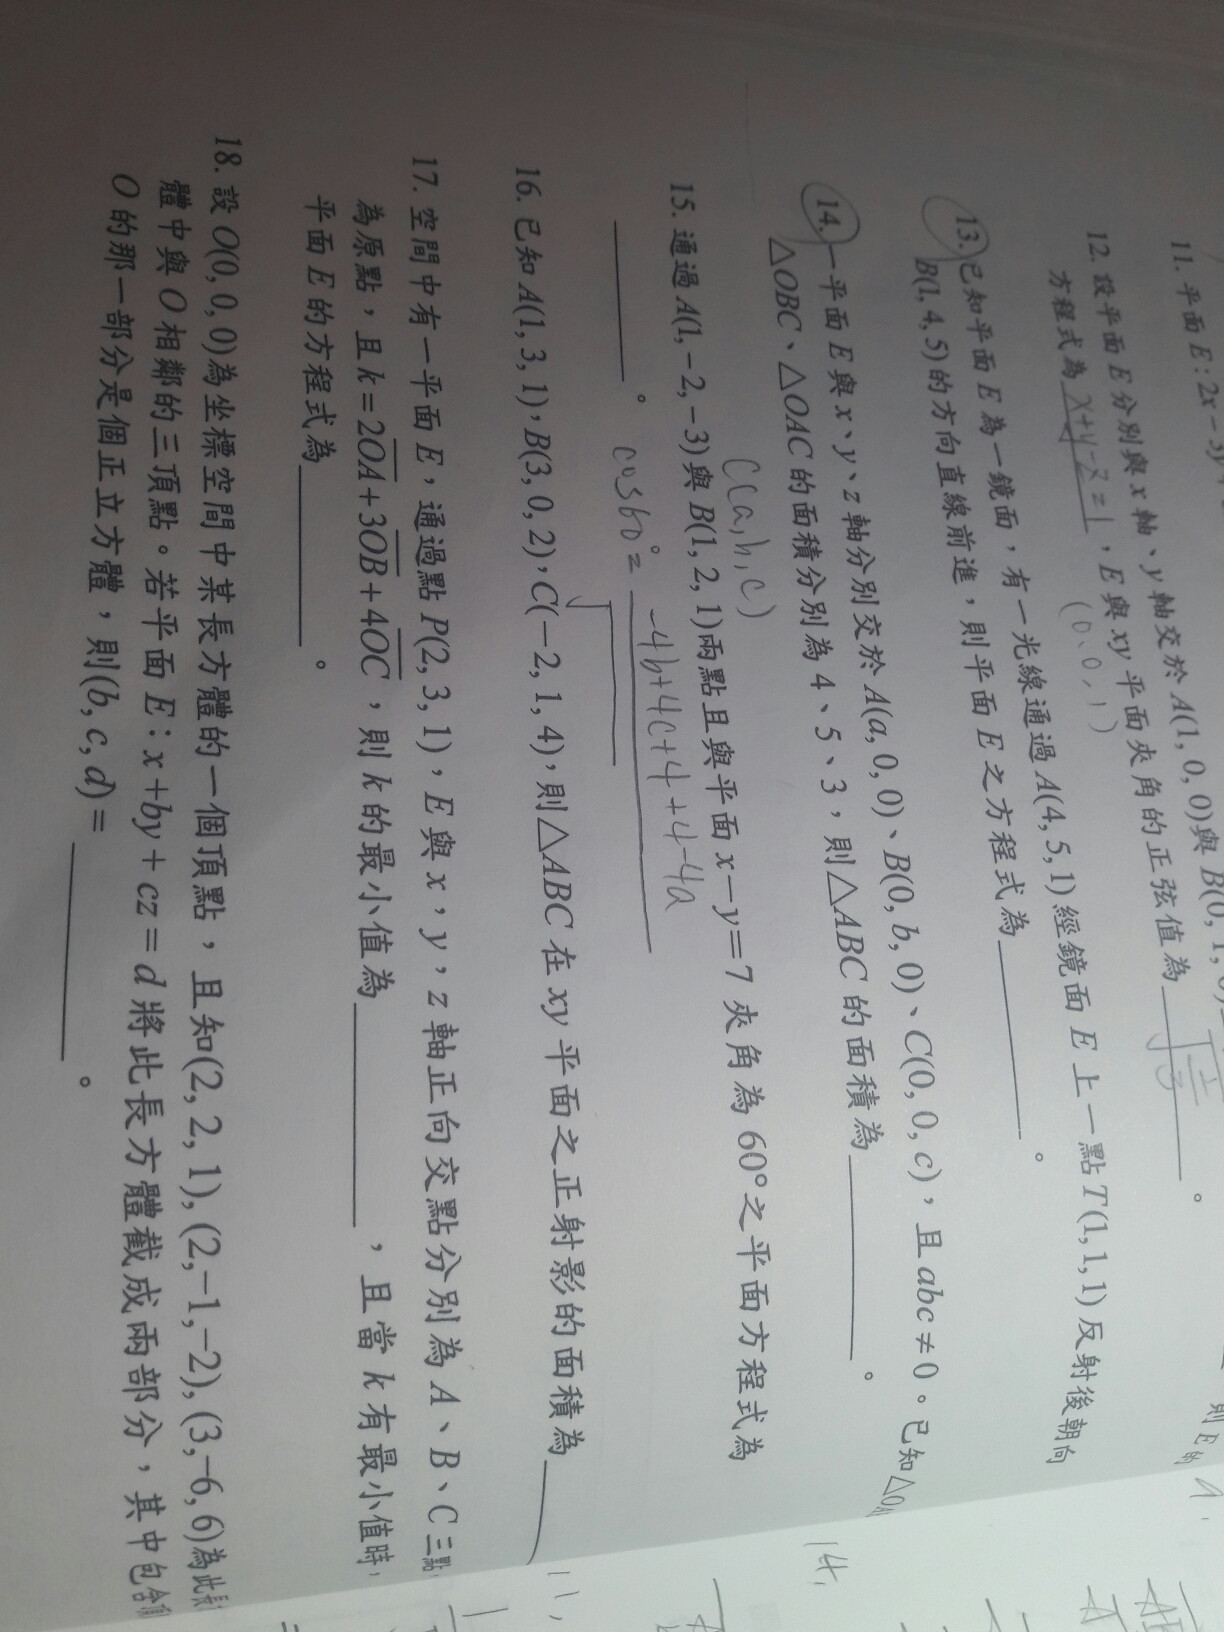 11. 平面 E : 2x − 3y
則 E 的
12. 設平面 E 分別與 x 軸、y 軸交於 A(1, 0, 0)與 B(0, 1, 0)
方程式為 x+y-z=1 ，E 與 xy 平面夾角的正弦值為 。
(0,0,1)
13. 已知平面 E 為一鏡面，有一光線通過 A(4, 5, 1)經鏡面 E 上一點 T(1, 1, 1)反射後朝向
B(1, 4, 5)的方向直線前進，則平面 E 之方程式為 。
14. 一平面 E 與 x、y、z 軸分別交於 A(a, 0, 0)、B(0, b, 0)、C(0, 0, c)，且 abc ≠ 0。已知△OA
△OBC、△OAC 的面積分別為 4、5、3，則△ABC 的面積為 。
C(a,b,c)
15. 通過 A(1, −2, −3)與 B(1, 2, 1)兩點且與平面 x − y = 7 夾角為 60°之平面方程式為
。
cos60°= -4b+4c+4+4-4a
16. 已知 A(1, 3, 1)，B(3, 0, 2)，C(−2, 1, 4)，則△ABC 在 xy 平面之正射影的面積為
17. 空間中有一平面 E，通過點 P(2, 3, 1)，E 與 x，y，z 軸正向交點分別為 A、B、C 三點
為原點，且 k = 2OA + 3OB + 4OC，則 k 的最小值為 ，且當 k 有最小值時，
平面 E 的方程式為 。
18. 設 O(0, 0, 0)為坐標空間中某長方體的一個頂點，且知(2, 2, 1), (2, −1, −2), (3, −6, 6)為此長
體中與 O 相鄰的三頂點。若平面 E : x + by + cz = d 將此長方體截成兩部分，其中包含
O 的那一部分是個正立方體，則(b, c, d) = 。
14,
11,